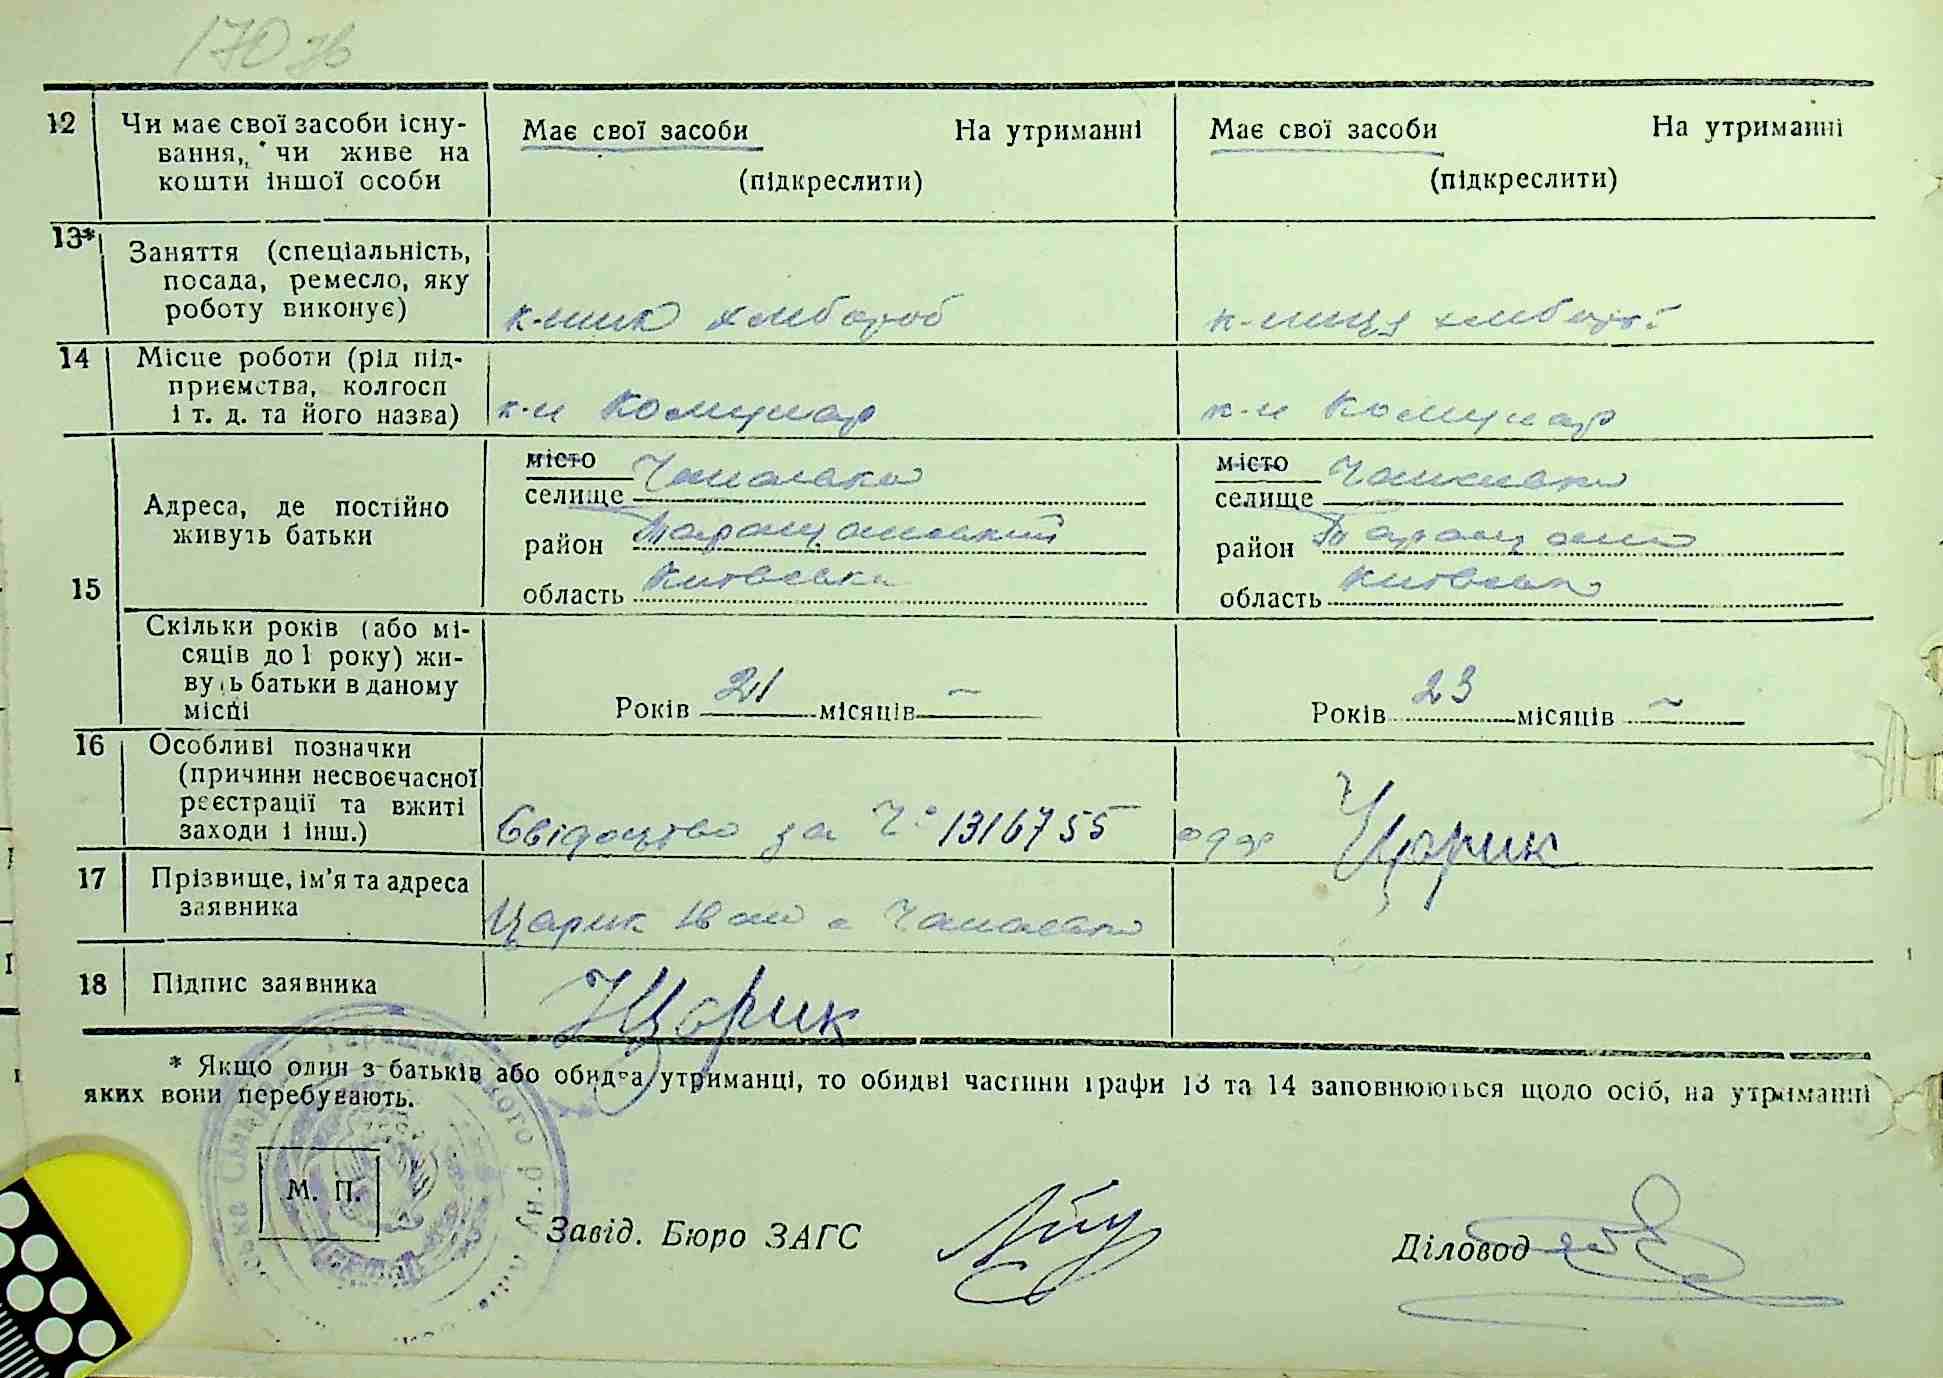 170 зв
12 Чи має свої засоби існу-
вання, чи живе на
кошти іншої особи
Має свої засоби На утриманні
(підкреслити)
Має свої засоби На утриманні
(підкреслити)
13* Заняття (спеціальність,
посада, ремесло, яку
роботу виконує)
к-ник хлібороб
к-ниця хлібороб
14 Місце роботи (рід під-
приємства, колгосп
і т. д. та його назва)
к-п Комунар
к-п Комунар
15 Адреса, де постійно
живуть батьки
місто
селище
район Таращанський
область Київська
місто
селище
район Таращан
область Київська
Скільки років (або мі-
сяців до 1 року) жи-
вуть батьки в даному
місці
Років 21 місяців –
Років 23 місяців –
16 Особливі позначки
(причини несвоєчасної
реєстрації та вжиті
заходи і інш.)
Свідоцтво за № 1316755 одер Царик
17 Прізвище, ім'я та адреса
заявника
Царик Іван с
18 Підпис заявника
Царик
* Якщо один з батьків або обидва утриманці, то обидві частини графи 13 та 14 заповнюються щодо осіб, на утриманні
яких вони перебувають.
М. П.
Завід. Бюро ЗАГС
Діловод